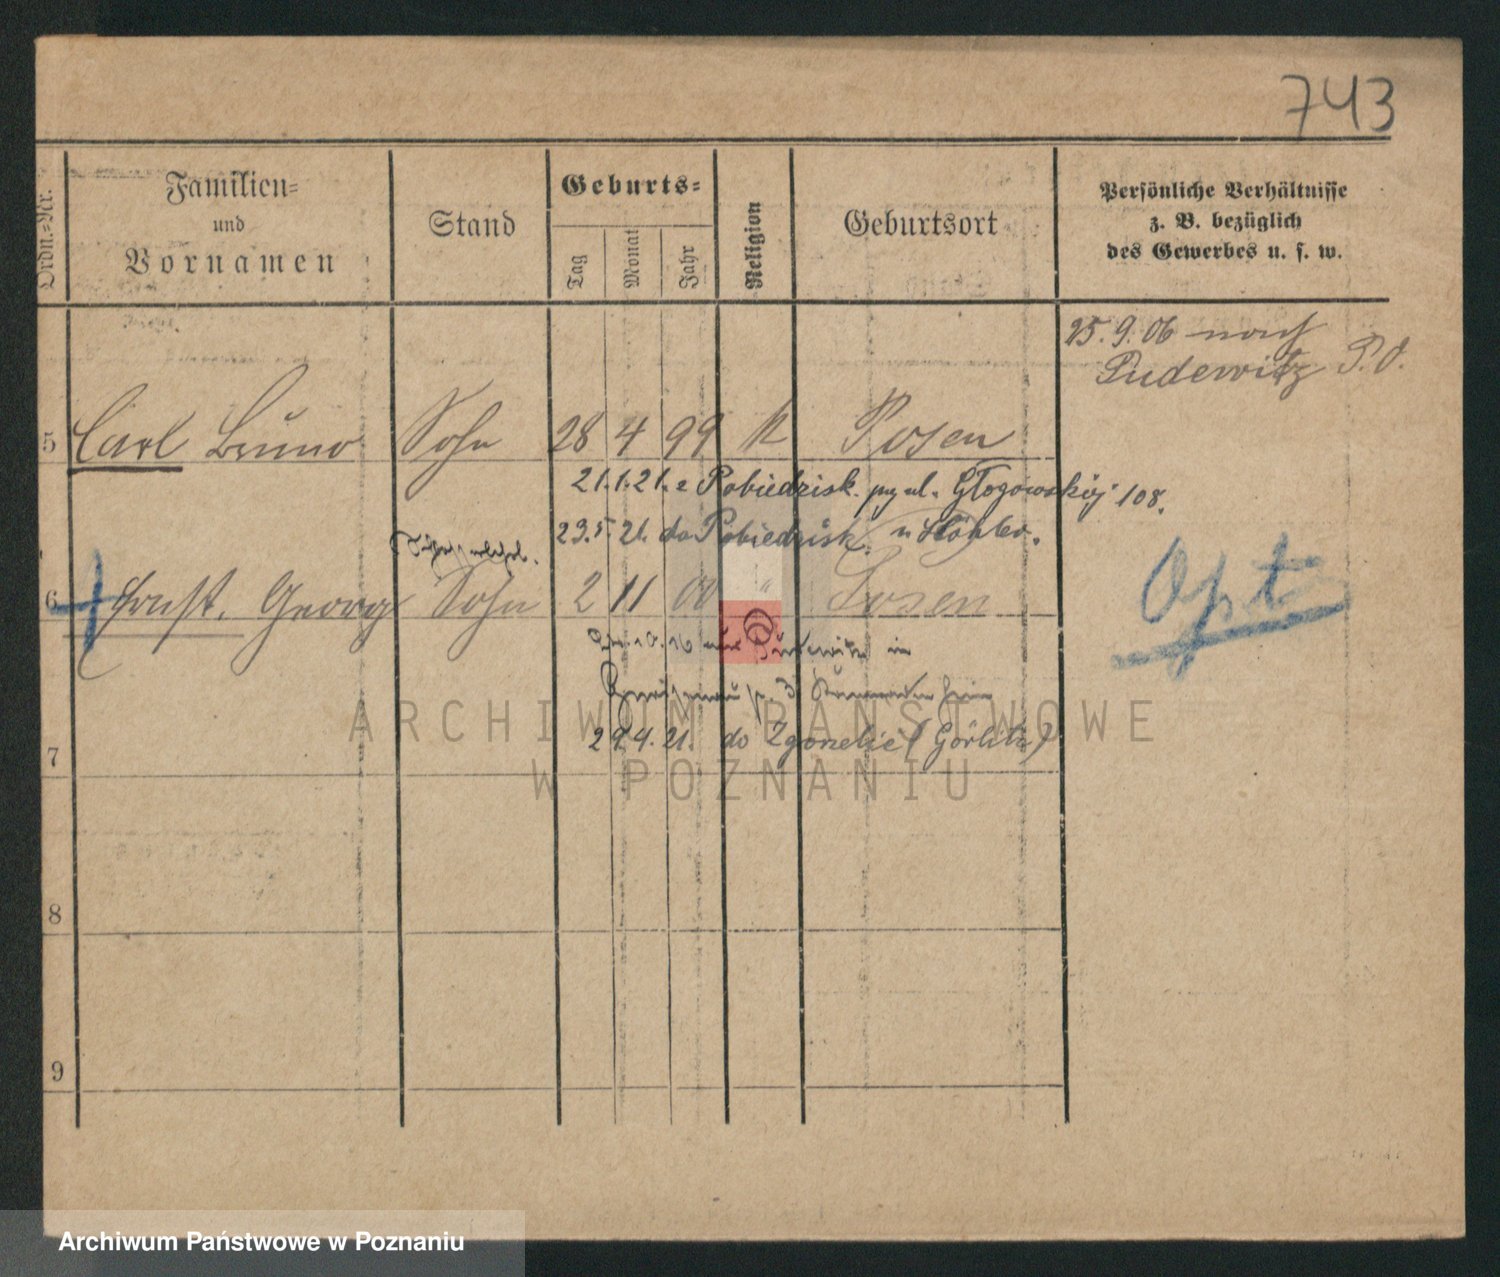 743
Ordn.-Nr.
Familien-
und
Vornamen
Stand
Geburts-
Tag
Monat
Jahr
Religion
Geburtsort
Persönliche Verhältnisse
z. B. bezüglich
des Gewerbes u. s. w.
25. 9. 06 nach
Pudewitz P. O.
5 Carl Bruno Sohn 28 4 99 K Posen
21.1.21. z Pobiedzisk. ul. Głogowskiej 108.
23.5.21. do Pobiedzisk.
6 Ernst, Georg Sohn 2 11 00 " Posen
Opt
in
29.4.21. do Zgorzelic (Görlitz)
7
8
9
ARCHIWUM PAŃSTWOWE
W POZNANIU
Archiwum Państwowe w Poznaniu